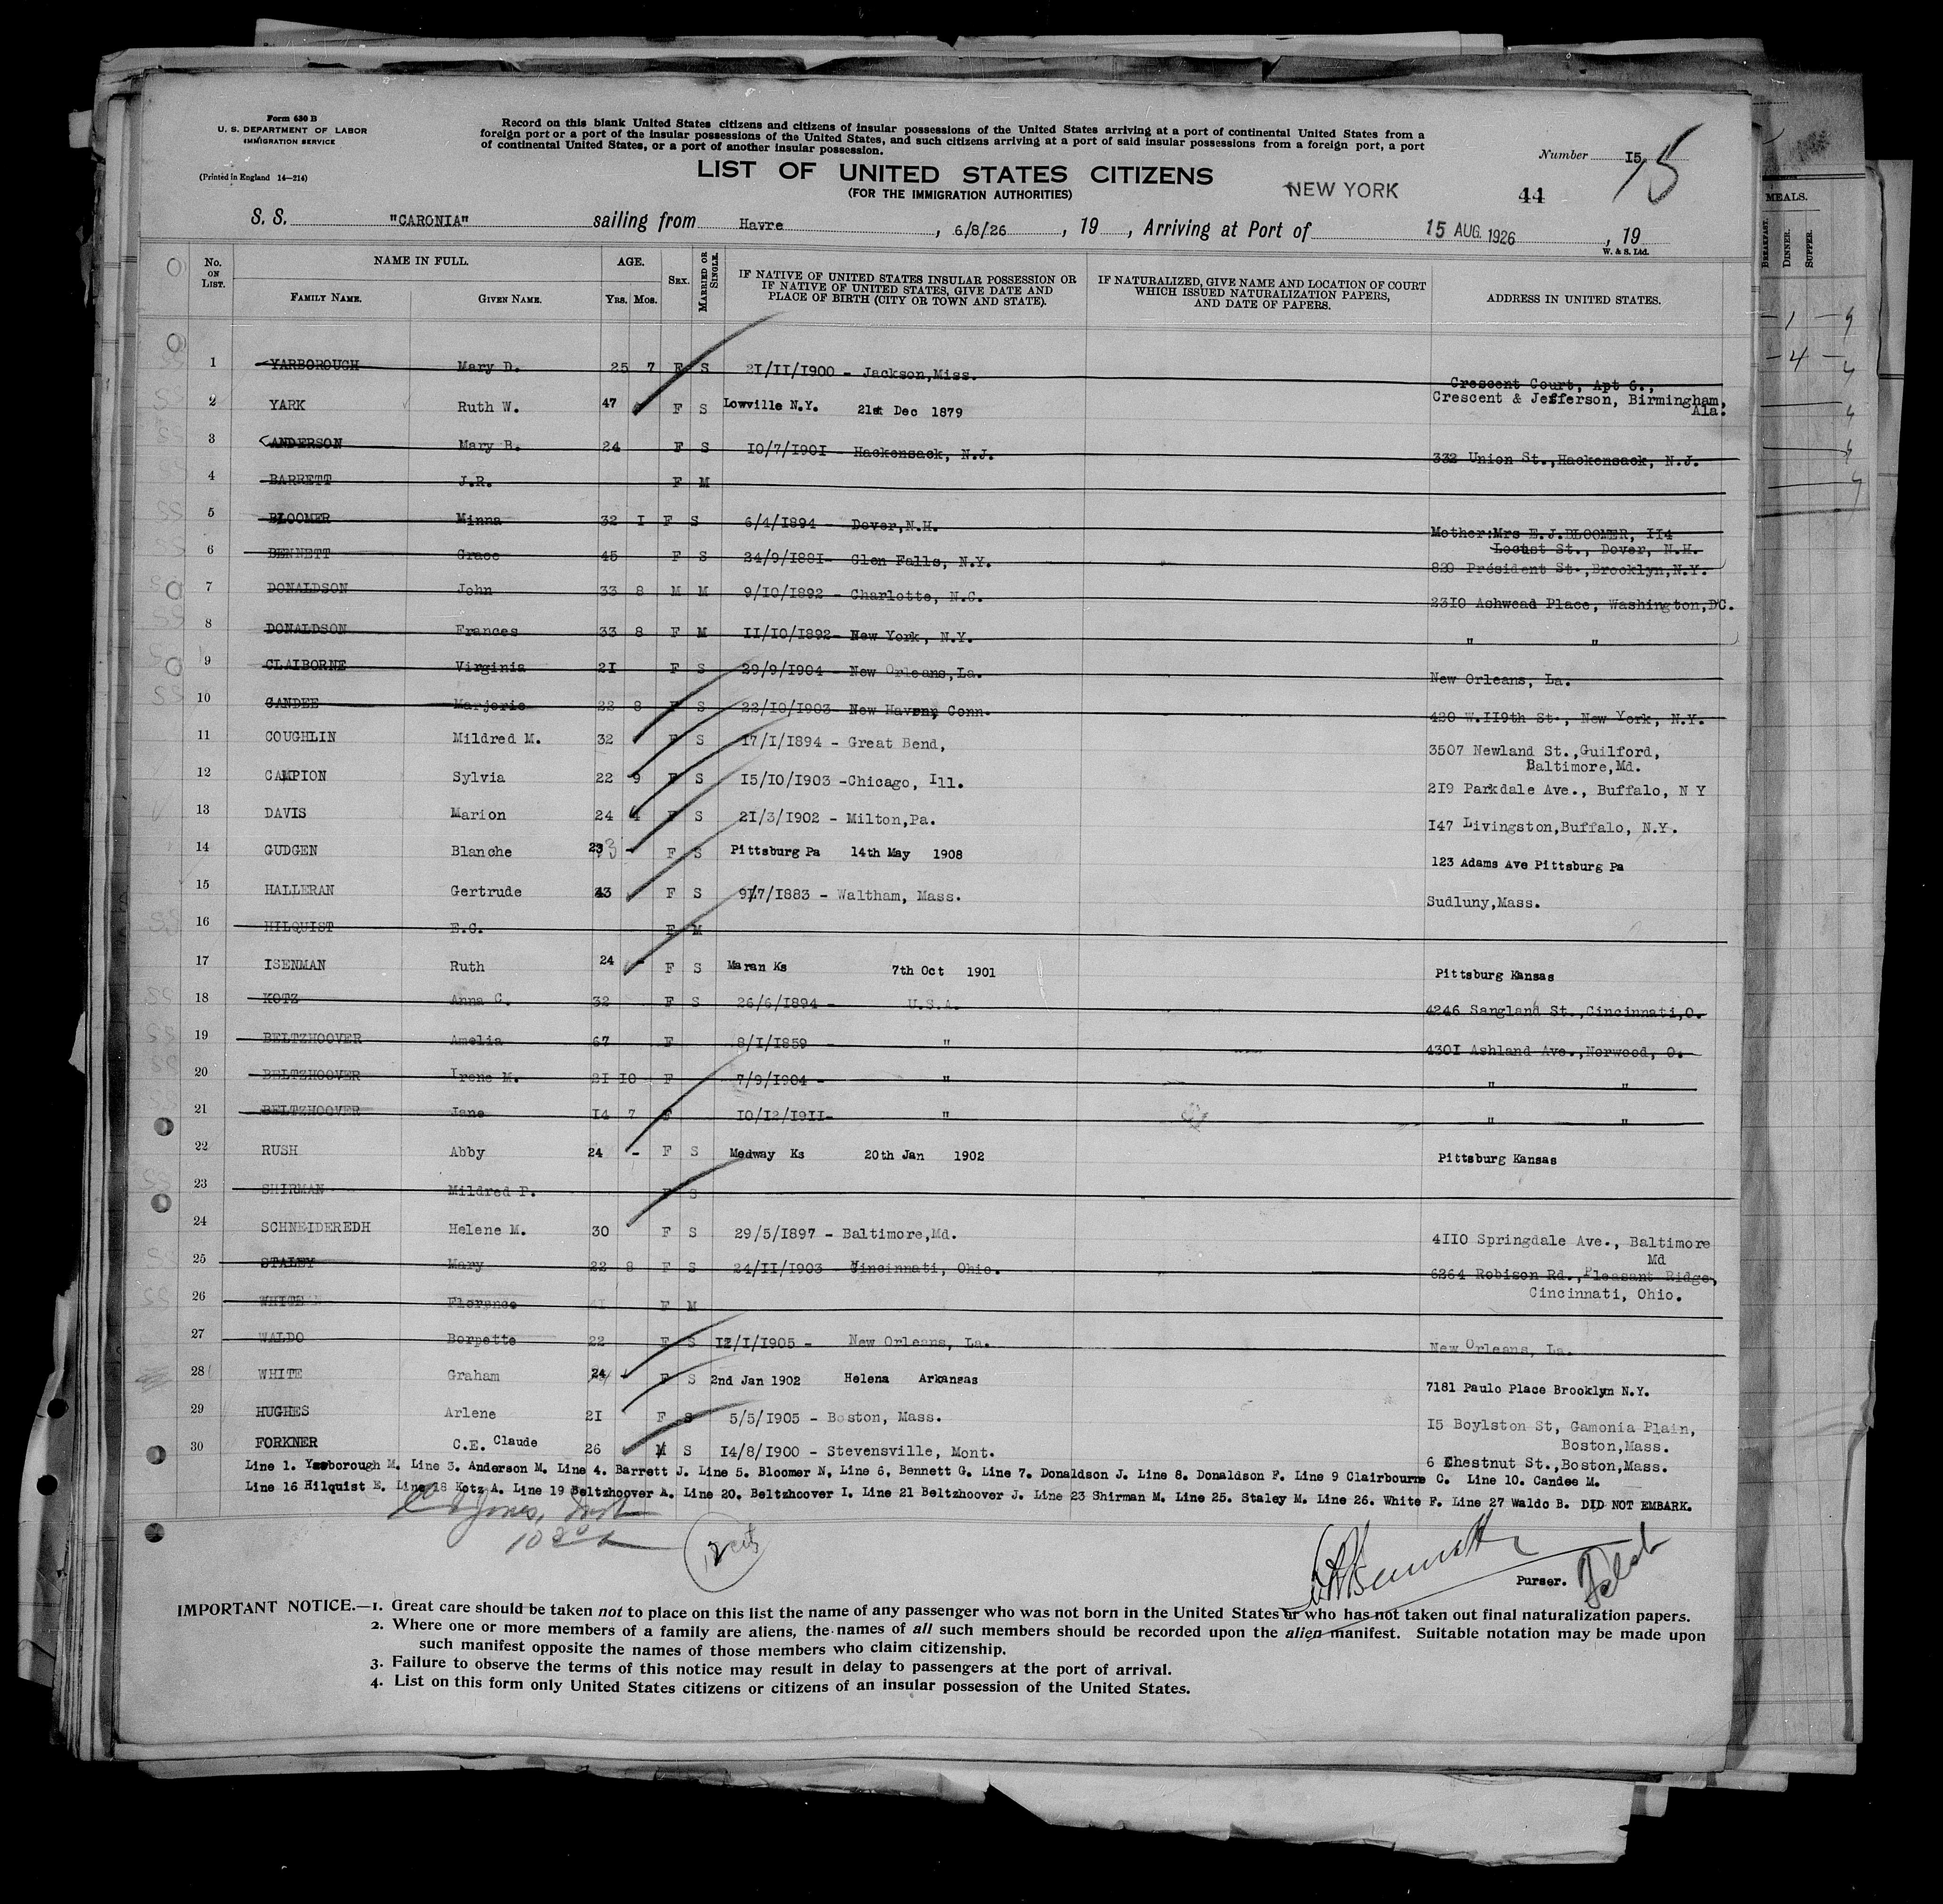 Form 630 B
U. S. DEPARTMENT OF LABOR
IMMIGRATION SERVICE
(Printed in England 14—214)
Record on this blank United States citizens and citizens of insular possessions of the United States arriving at a port of continental United States from a
foreign port or a port of the insular possessions of the United States, and such citizens arriving at a port of said insular possessions from a foreign port, a port
of continental United States, or a port of another insular possession.
LIST OF UNITED STATES CITIZENS
(FOR THE IMMIGRATION AUTHORITIES)
NEW YORK
Number 15
15
44
S. S. "CARONIA" sailing from Havre, 6/8/26, 19 , Arriving at Port of 15 AUG. 1926, 19
W. & S. Ltd.
No. ON LIST. NAME IN FULL. FAMILY NAME. GIVEN NAME. AGE. Yrs. Mos. SEX. MARRIED OR SINGLE. IF NATIVE OF UNITED STATES INSULAR POSSESSION OR IF NATIVE OF UNITED STATES, GIVE DATE AND PLACE OF BIRTH (CITY OR TOWN AND STATE). IF NATURALIZED, GIVE NAME AND LOCATION OF COURT WHICH ISSUED NATURALIZATION PAPERS, AND DATE OF PAPERS. ADDRESS IN UNITED STATES.
1 YARBOROUGH Mary D. 25 7 F S 21/11/1900 - Jackson,Miss. Crescent Court, Apt 6.,
Crescent & Jefferson, Birmingham, Ala.
2 YARK Ruth W. 47 F S Lowville N.Y. 21st Dec 1879
3 ANDERSON Mary B. 24 F S 10/7/1901 - Hackensack, N.J. 332 Union St.,Hackensack, N.J.
4 BARRETT J.R. F M
5 BLOOMER Minna 32 1 F S 6/4/1894 - Dover,N.H. Mother:Mrs E.J.BLOOMER, 114
Locust St., Dover, N.H.
6 BENNETT Grace 45 F S 24/9/1881- Glen Falls, N.Y. 820 Président St.,Brooklyn,N.Y.
7 DONALDSON John 33 8 M M 9/10/1892 - Charlotte, N.C. 2310 Ashwead Place, Washington,DC.
8 DONALDSON Frances 33 8 F M 11/10/1892- New York, N.Y. " "
9 CLAIBORNE Virginia 21 F S 29/9/1904 - New Orleans,La. New Orleans, La.
10 CANDEE Marjorie 22 8 F S 22/10/1903- New Haven, Conn. 420 W.119th St., New York, N.Y.
11 COUGHLIN Mildred M. 32 F S 17/1/1894 - Great Bend, 3507 Newland St.,Guilford,
Baltimore,Md.
12 CAMPION Sylvia 22 9 F S 15/10/1903 -Chicago, Ill. 219 Parkdale Ave., Buffalo, N Y
13 DAVIS Marion 24 4 F S 21/3/1902 - Milton,Pa. 147 Livingston,Buffalo, N.Y.
14 GUDGEN Blanche 23 F S Pittsburg Pa 14th May 1908 123 Adams Ave Pittsburg Pa
15 HALLERAN Gertrude 43 F S 9/7/1883 - Waltham, Mass. Sudluny,Mass.
16 HILQUIST E.C. F M
17 ISENMAN Ruth 24 - F S Maran Ks 7th Oct 1901 Pittsburg Kansas
18 KOTZ Anna C. 32 F S 26/6/1894 - U.S.A. 4246 Sangland St.,Cincinnati,O.
19 BELTZHOOVER Amelia 67 F 8/1/1859 - " 4301 Ashland Ave.,Norwood, O.
20 BELTZHOOVER Irene M. 21 10 F 7/9/1904 - " " "
21 BELTZHOOVER Jane 14 7 F 10/12/1911- " " "
22 RUSH Abby 24 - F S Medway Ks 20th Jan 1902 Pittsburg Kansas
23 SHIRMAN Mildred P. F S
24 SCHNEIDEREDH Helene M. 30 F S 29/5/1897 - Baltimore,Md. 4110 Springdale Ave., Baltimore
Md
25 STALEY Mary 22 8 F S 24/11/1903 - Cincinnati, Ohio. 6264 Robison Rd.,Pleasant Ridge,
Cincinnati, Ohio.
26 WHITE Florence 41 F M
27 WALDO Borpette 22 F S 12/1/1905 - New Orleans, La. New Orleans, La.
28 WHITE Graham 24 F S 2nd Jan 1902 Helena Arkansas 7181 Paulo Place Brooklyn N.Y.
29 HUGHES Arlene 21 F S 5/5/1905 - Boston, Mass. 15 Boylston St, Gamonia Plain,
Boston,Mass.
30 FORKNER C.E. Claude 26 M S 14/8/1900 - Stevensville, Mont. 6 Chestnut St.,Boston,Mass.
Line 1. Yarborough M. Line 3. Anderson M. Line 4. Barrett J. Line 5. Bloomer N. Line 6. Bennett G. Line 7. Donaldson J. Line 8. Donaldson F. Line 9 Clairbourne C. Line 10. Candee M.
Line 16 Hilquist E. Line 18 Kotz A. Line 19 Beltzhoover A. Line 20. Beltzhoover I. Line 21 Beltzhoover J. Line 23 Shirman M. Line 25. Staley M. Line 26. White F. Line 27 Waldo B. DID NOT EMBARK.
Purser.
IMPORTANT NOTICE.—1. Great care should be taken not to place on this list the name of any passenger who was not born in the United States or who has not taken out final naturalization papers.
2. Where one or more members of a family are aliens, the names of all such members should be recorded upon the alien manifest. Suitable notation may be made upon
such manifest opposite the names of those members who claim citizenship.
3. Failure to observe the terms of this notice may result in delay to passengers at the port of arrival.
4. List on this form only United States citizens or citizens of an insular possession of the United States.
MEALS.
BREAKFAST. DINNER. SUPPER.